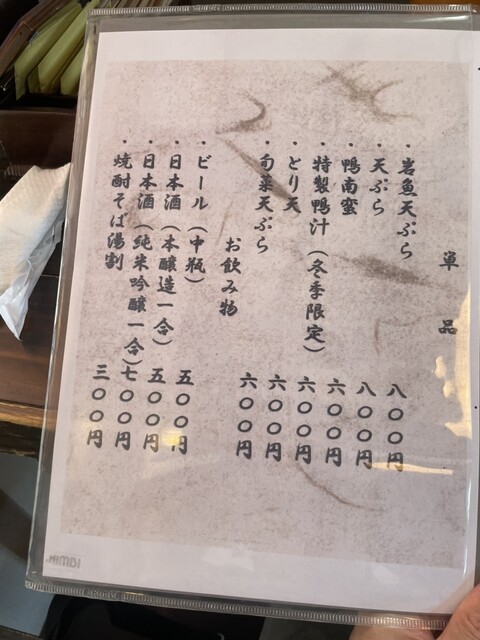 単品
・岩魚天ぷら 八〇〇円
・天ぷら 八〇〇円
・鴨南蛮 六〇〇円
・特製鴨汁(冬季限定) 六〇〇円
・とり天 六〇〇円
・旬菜天ぷら 六〇〇円
お飲み物
・ビール(中瓶) 五〇〇円
・日本酒(本醸造一合) 五〇〇円
・日本酒(純米吟醸一合) 七〇〇円
・焼酎そば湯割 三〇〇円